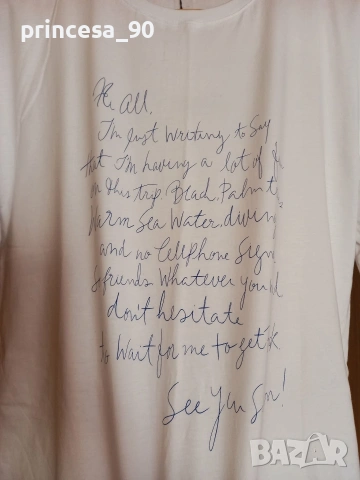 princesa_90
Hi All.
I'm just writing to say
that I'm having a lot of
on this trip. Beach, Palm
Warm Sea Water, diving
and no Cellphone Sign
So friends Whatever you
don't hesitate
to Wait for me to get
See you Soon!
BAZAR
bg